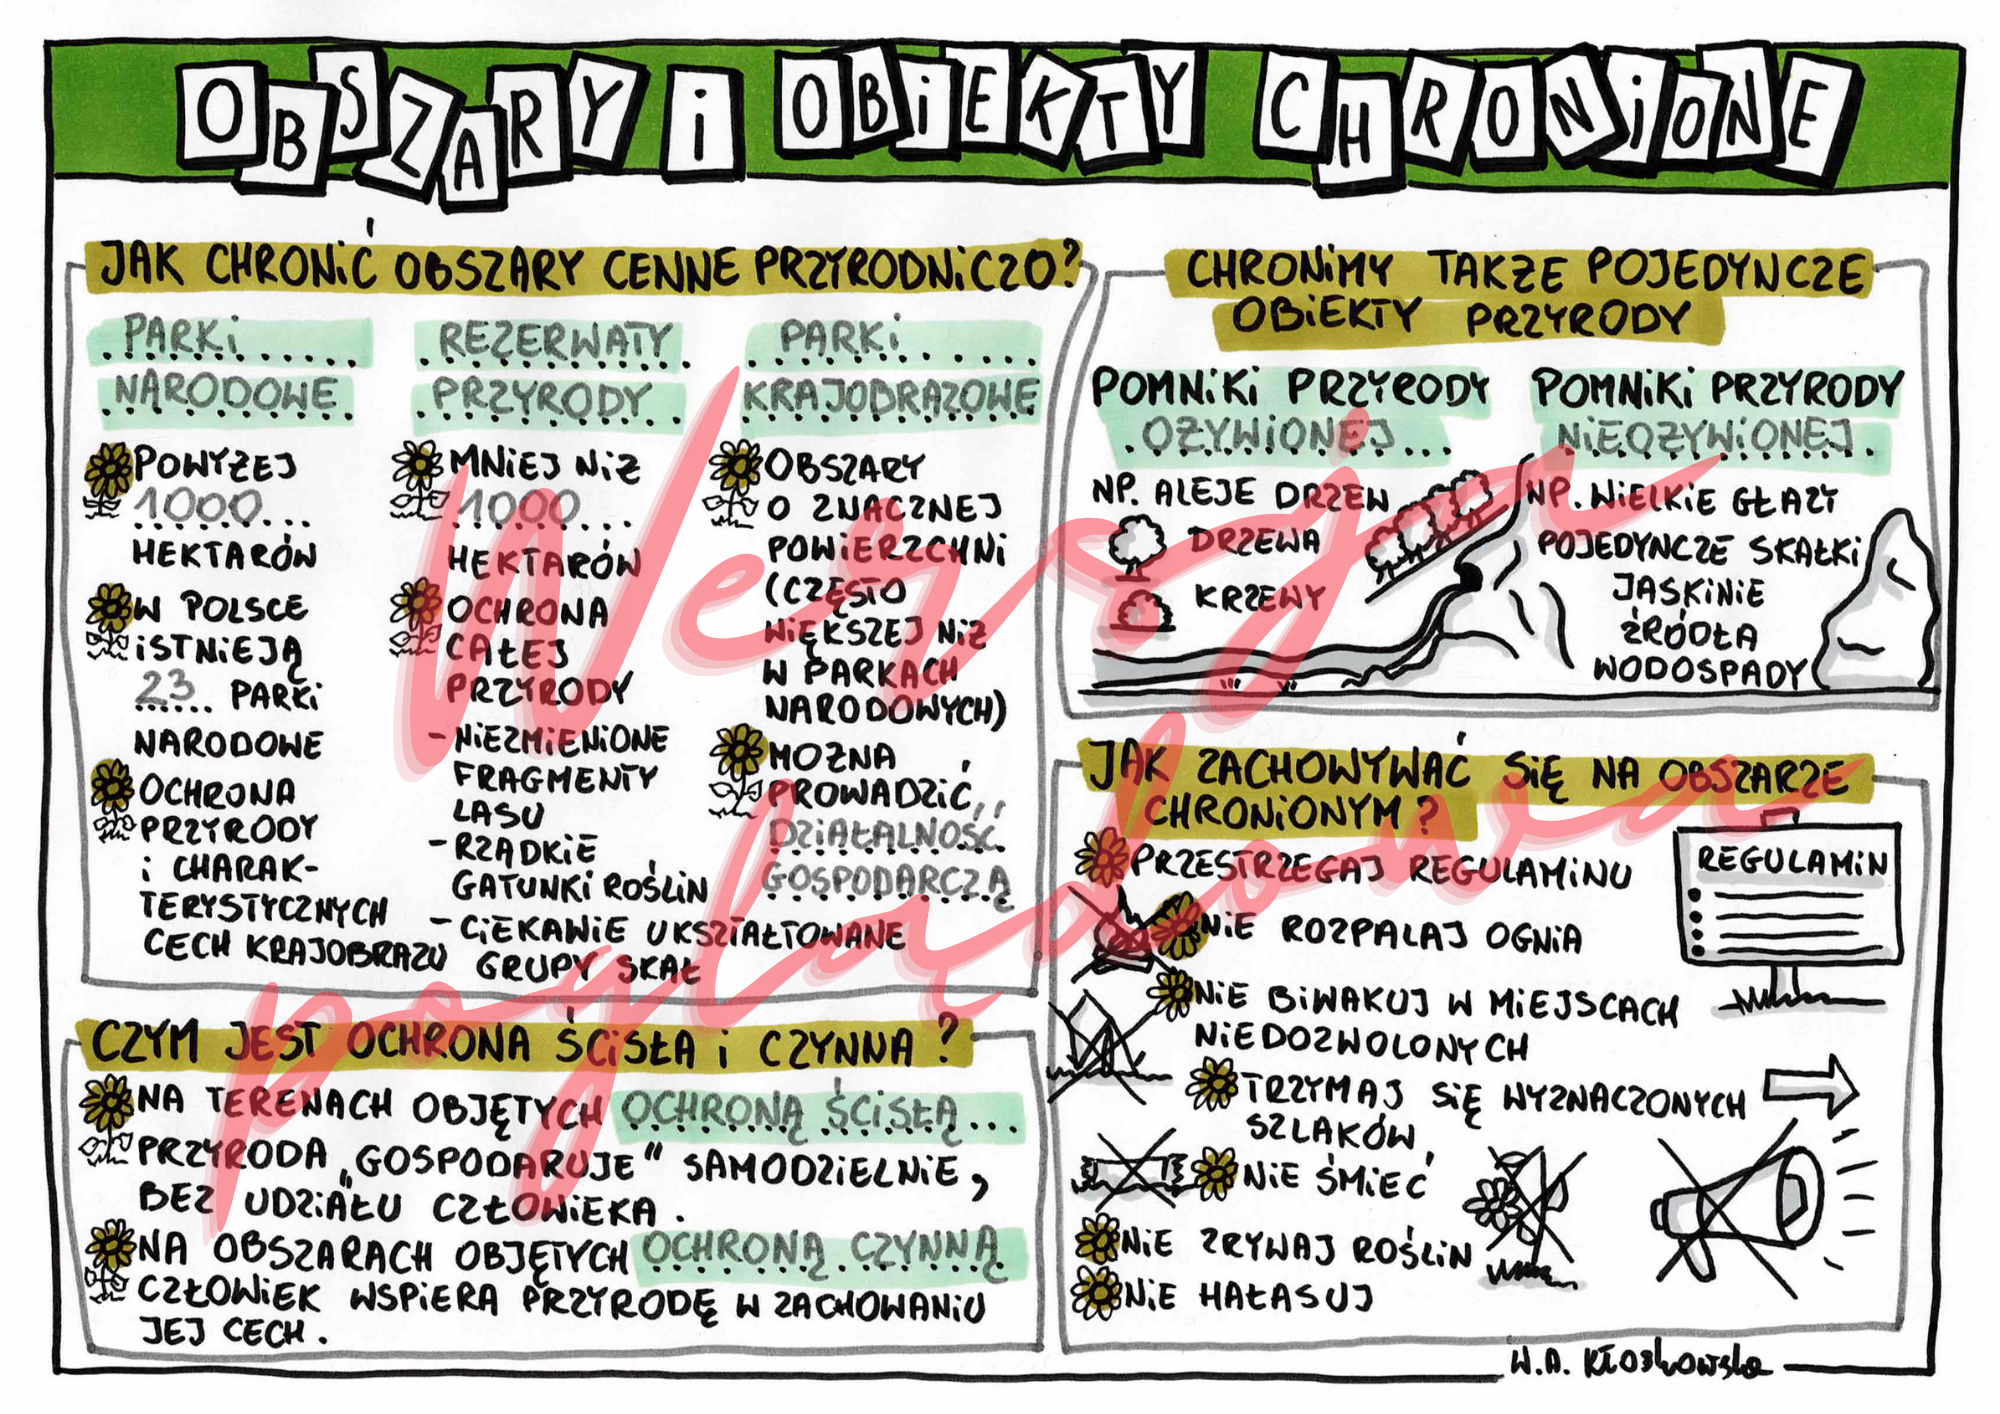 OBSZARY i OBiEKTY CHRONiONE
JAK CHRONiĆ OBSZARY CENNE PRZYRODNiCZO?
PARKi
NARODOWE
POWYŻEJ
1000
HEKTARÓW
W POLSCE
iSTNiEJĄ
23 PARKi
NARODOWE
OCHRONA
PRZYRODY
i CHARAK-
TERYSTYCZNYCH
CECH KRAJOBRAZU
REZERWATY
PRZYRODY
MNiEJ NiŻ
1000
HEKTARÓW
OCHRONA
CAŁEJ
PRZYRODY
- NiEZMiENiONE
FRAGMENTY
LASU
- RZADKiE
GATUNKi ROŚLiN
- CiEKAWiE UKSZTAŁTOWANE
GRUPY SKAŁ
PARKi
KRAJOBRAZOWE
OBSZARY
O ZNACZNEJ
POWiERZCHNi
(CZĘSTO
WiĘKSZEJ NiŻ
W PARKACH
NARODOWYCH)
MOŻNA
PROWADZiĆ
DZiAŁALNOŚĆ
GOSPODARCZĄ
CZYM JEST OCHRONA ŚCiSŁA i CZYNNA?
NA TERENACH OBJĘTYCH OCHRONĄ ŚCiSŁĄ...
PRZYRODA „GOSPODARUJE" SAMODZiELNiE,
BEZ UDZiAŁU CZŁOWiEKA.
NA OBSZARACH OBJĘTYCH OCHRONĄ CZYNNĄ
CZŁOWiEK WSPiERA PRZYRODĘ W ZACHOWANiU
JEJ CECH.
CHRONiMY TAKŻE POJEDYNCZE
OBiEKTY PRZYRODY
POMNiKi PRZYRODY
OŻYWiONEJ...
NP. ALEJE DRZEW
DRZEWA
KRZEWY
POMNiKi PRZYRODY
NiEOŻYWiONEJ.
NP. WiELKiE GŁAZY
POJEDYNCZE SKAŁKi
JASKiNiE
ŹRÓDŁA
WODOSPADY
JAK ZACHOWYWAĆ SiĘ NA OBSZARZE
CHRONiONYM?
PRZESTRZEGAJ REGULAMiNU
REGULAMiN
NiE ROZPALAJ OGNiA
NiE BiWAKUJ W MiEJSCACH
NiEDOZWOLONYCH
TRZYMAJ SiĘ WYZNACZONYCH
SZLAKÓW
NiE ŚMiEĆ
NiE ZRYWAJ ROŚLiN
NiE HAŁASUJ
W.A. Kłoskowska
Wersja
poglądowa